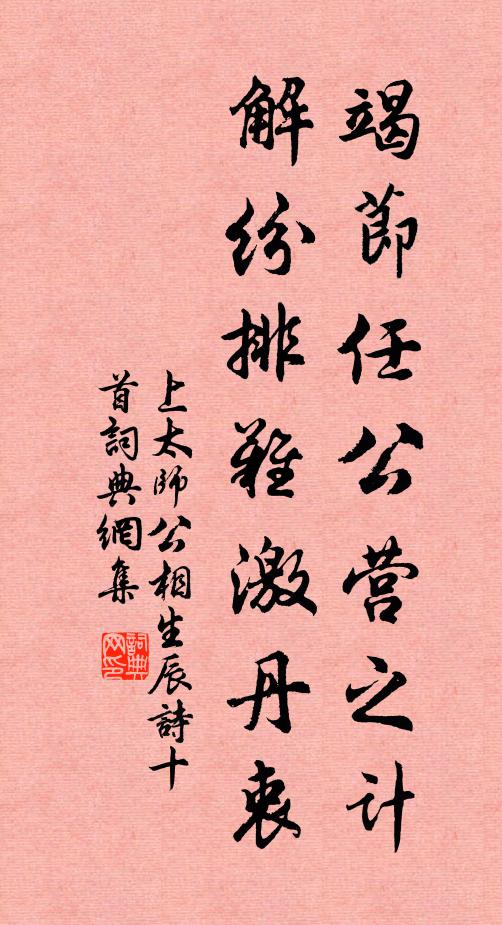 竭節任公营之计
解紛排難激丹衷
上太師公相生辰詩十
首詞典網集
詞典网印